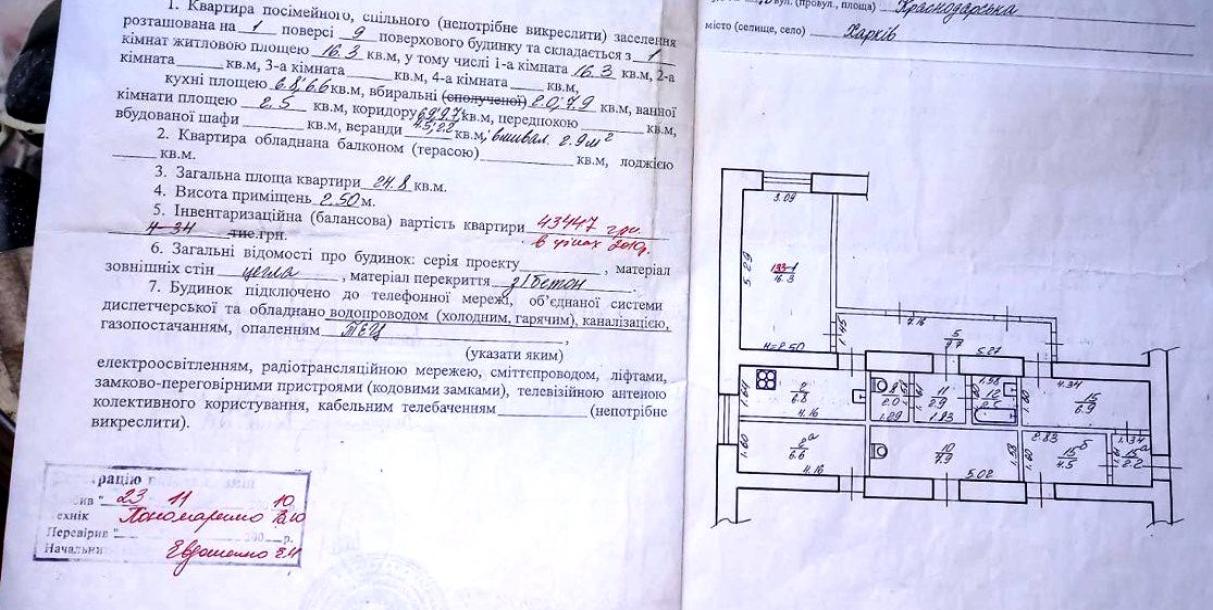 1. Квартира посімейного, спільного (непотрібне викреслити) заселення
розташована на 1 поверсі 9 поверхового будинку та складається з 1
кімнат житловою площею 16.3 кв.м, у тому числі 1-а кімната 16.3 кв.м, 2-а
кімната кв.м, 3-а кімната кв.м, 4-а кімната кв.м,
кухні площею 6.8; 6.6 кв.м, вбиральні (сполученої) 2.0; 7.9 кв.м, ванної
кімнати площею 2.5 кв.м, коридору 6.9; 9.7; кв.м, передпокою кв.м,
вбудованої шафи кв.м, веранди 4.5; 2.2 кв.м, 2.9 м²
2. Квартира обладнана балконом (терасою) кв.м, лоджією
кв.м.
3. Загальна площа квартири 24.8 кв.м.
4. Висота приміщень 2.50 м.
5. Інвентаризаційна (балансова) вартість квартири 43447 грн.
4-34 тис.грн. в цінах 2010р.
6. Загальні відомості про будинок: серія проекту , матеріал
зовнішніх стін цегла , матеріал перекриття з/бетон .
7. Будинок підключено до телефонної мережі, об'єднаної системи
диспетчерської та обладнано водопроводом (холодним, гарячим), каналізацією,
газопостачанням, опаленням ТЕЦ ,
(указати яким)
електроосвітленням, радіотрансляційною мережею, сміттєпроводом, ліфтами,
замково-переговірними пристроями (кодовими замками), телевізійною антеною
колективного користування, кабельним телебаченням (непотрібне
викреслити).
23 11 10
Технік Пономаренко
Перевірив " 200 р.
Начальник
вул. (провул., площа) Краснодарська
місто (селище, село) Харків
3.09
5.29
16.3
H=2.50
1.45
7.16
5
5.27
1.64
2
6.8
4.16
2.0
1.09
11
2.9
1.83
1.56
12
2.5
4.34
15
6.9
1.60
2а
6.6
4.16
10
7.9
5.02
1.58
2.83
15б
4.5
1.60
1.34
15а
2.2